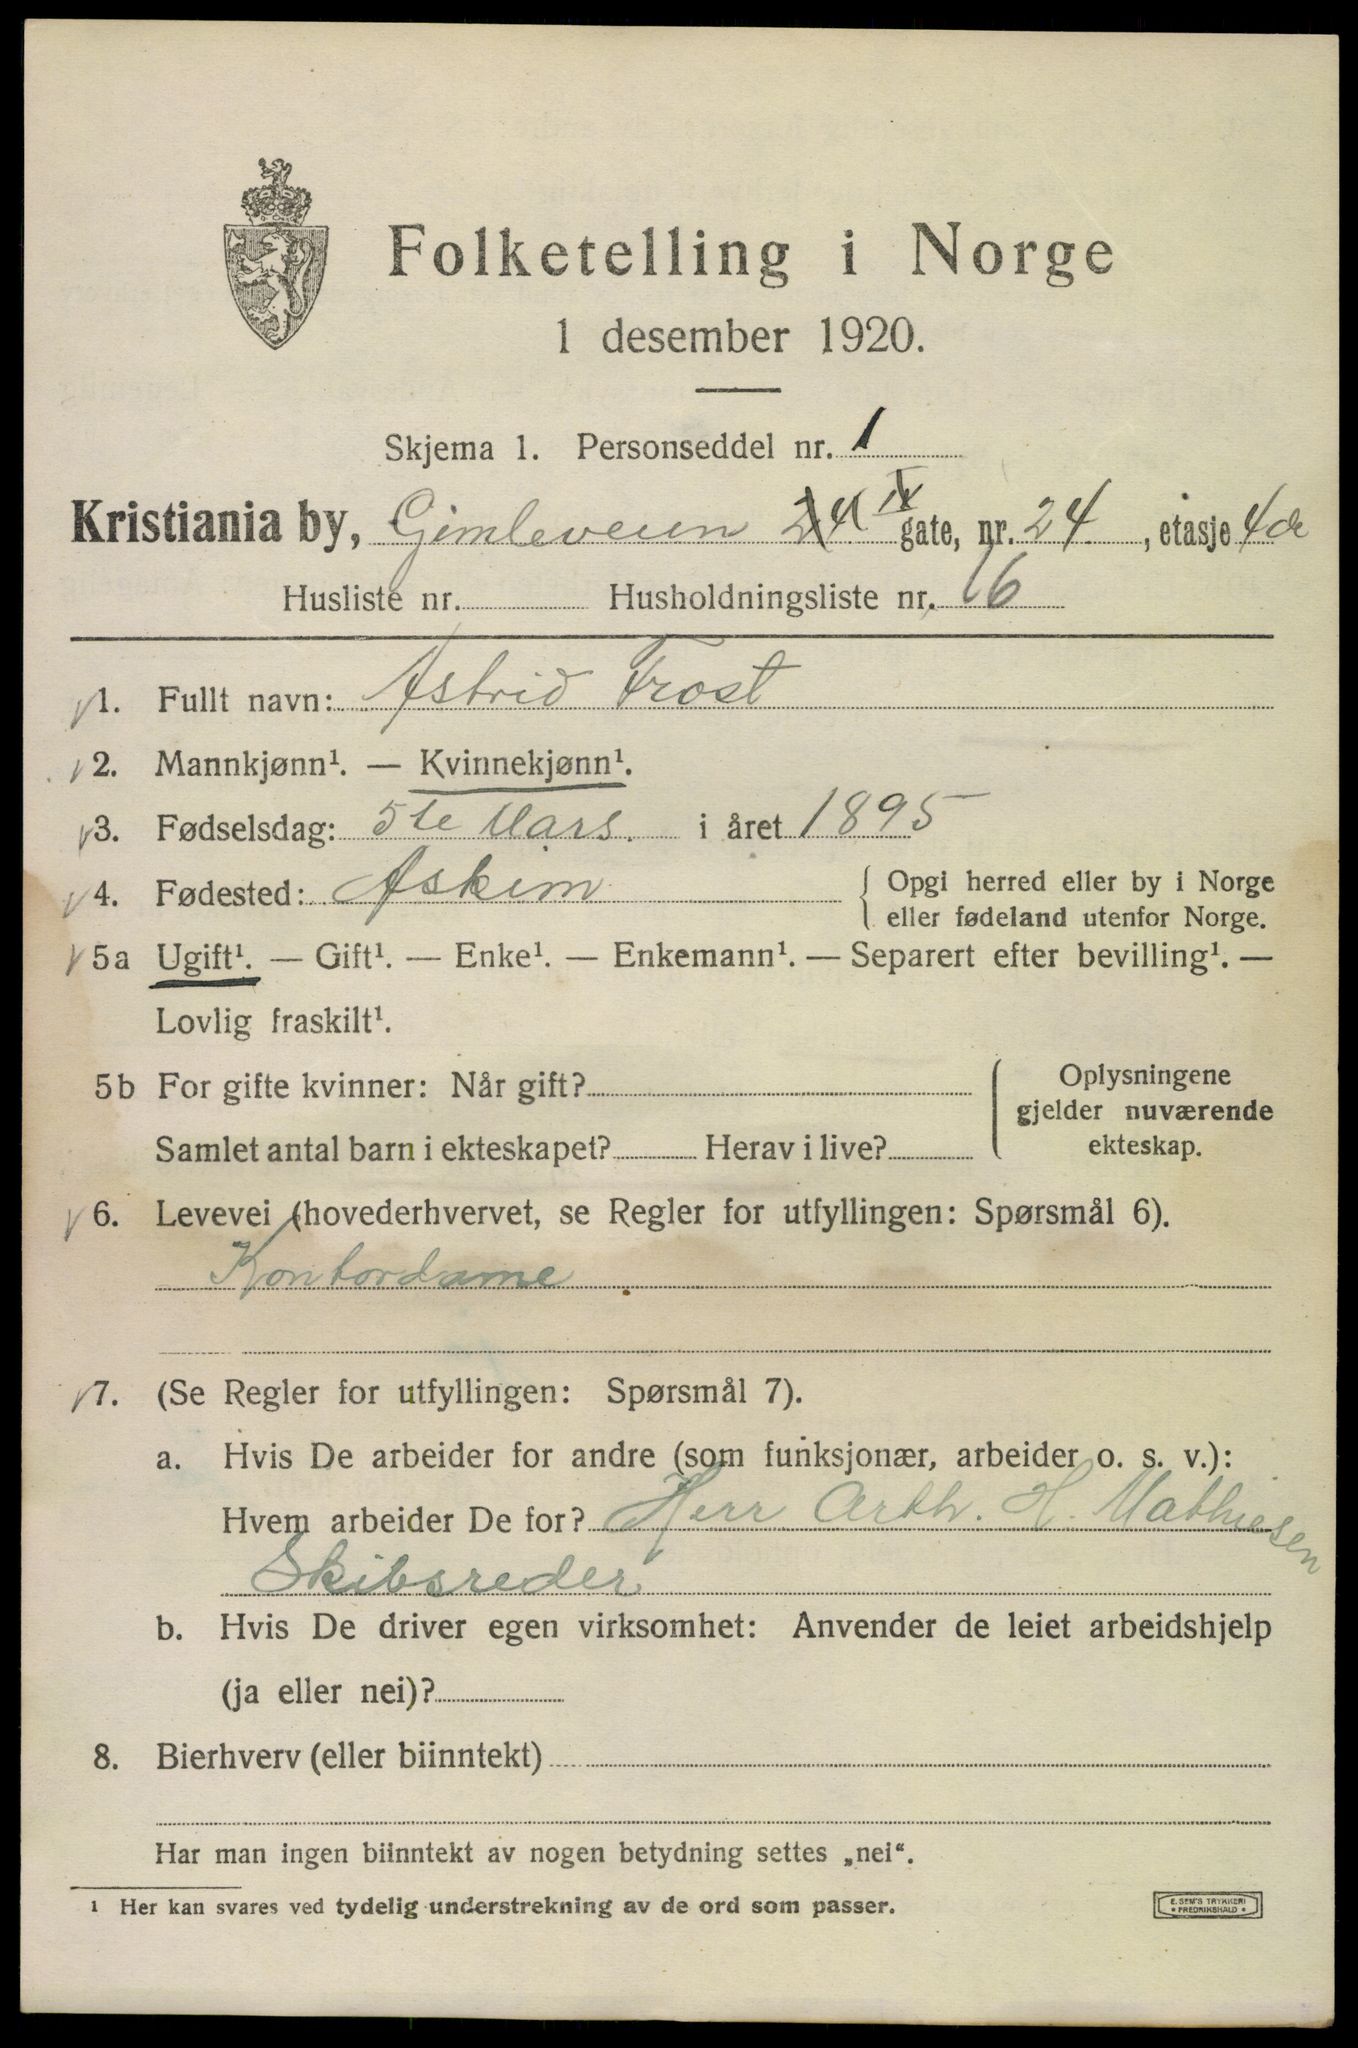 Folketelling i Norge
1 desember 1920.
Skjema 1. Personseddel nr. 1
Kristiania by, Gimleveien 24 IV gate, nr. 24, etasje 4de
Husliste nr. Husholdningsliste nr. 16
1. Fullt navn: Astrid Frost
2. Mannkjønn¹. — Kvinnekjønn¹.
3. Fødselsdag: 5te Mars. i året 1895
4. Fødested: Askim { Opgi herred eller by i Norge
eller fødeland utenfor Norge.
5a Ugift¹. — Gift¹. — Enke¹. — Enkemann¹. — Separert efter bevilling¹. —
Lovlig fraskilt¹.
5b For gifte kvinner: Når gift? Oplysningene
gjelder nuværende
Samlet antal barn i ekteskapet? Herav i live? ekteskap.
6. Levevei (hovederhvervet, se Regler for utfyllingen: Spørsmål 6).
Kontordame
7. (Se Regler for utfyllingen: Spørsmål 7).
a. Hvis De arbeider for andre (som funksjonær, arbeider o. s. v.):
Hvem arbeider De for? Herr Arth. H. Mathiesen
Skibsreder
b. Hvis De driver egen virksomhet: Anvender de leiet arbeidshjelp
(ja eller nei)?
8. Bierhverv (eller biinntekt)
Har man ingen biinntekt av nogen betydning settes „nei“.
¹ Her kan svares ved tydelig understrekning av de ord som passer.
E. SEM'S TRYKKERI
• FREDRIKSHALD •